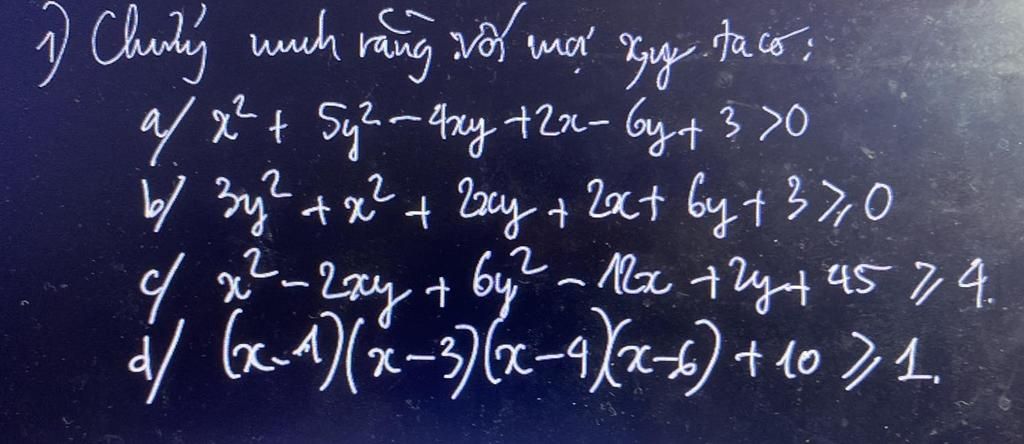 1) Chứng minh rằng với mọi x,y ta có:
a/ x² + 5y² - 4xy + 2x - 6y + 3 > 0
b/ 3y² + x² + 2xy + 2x + 6y + 3 ≥ 0
c/ x² - 2xy + 6y² - 12x + 2y + 45 ≥ 4.
d/ (x-1)(x-3)(x-4)(x-6) + 10 ≥ 1.